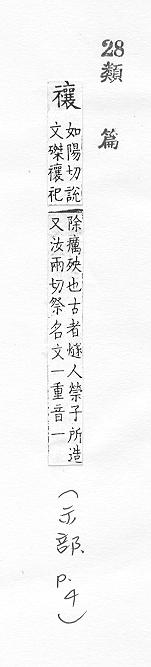 28
類篇
禳
如陽切說文磔禳祀
除癘殃也古者燧人禜子所造
又汝兩切祭名文一重音一
(示部 p.4)